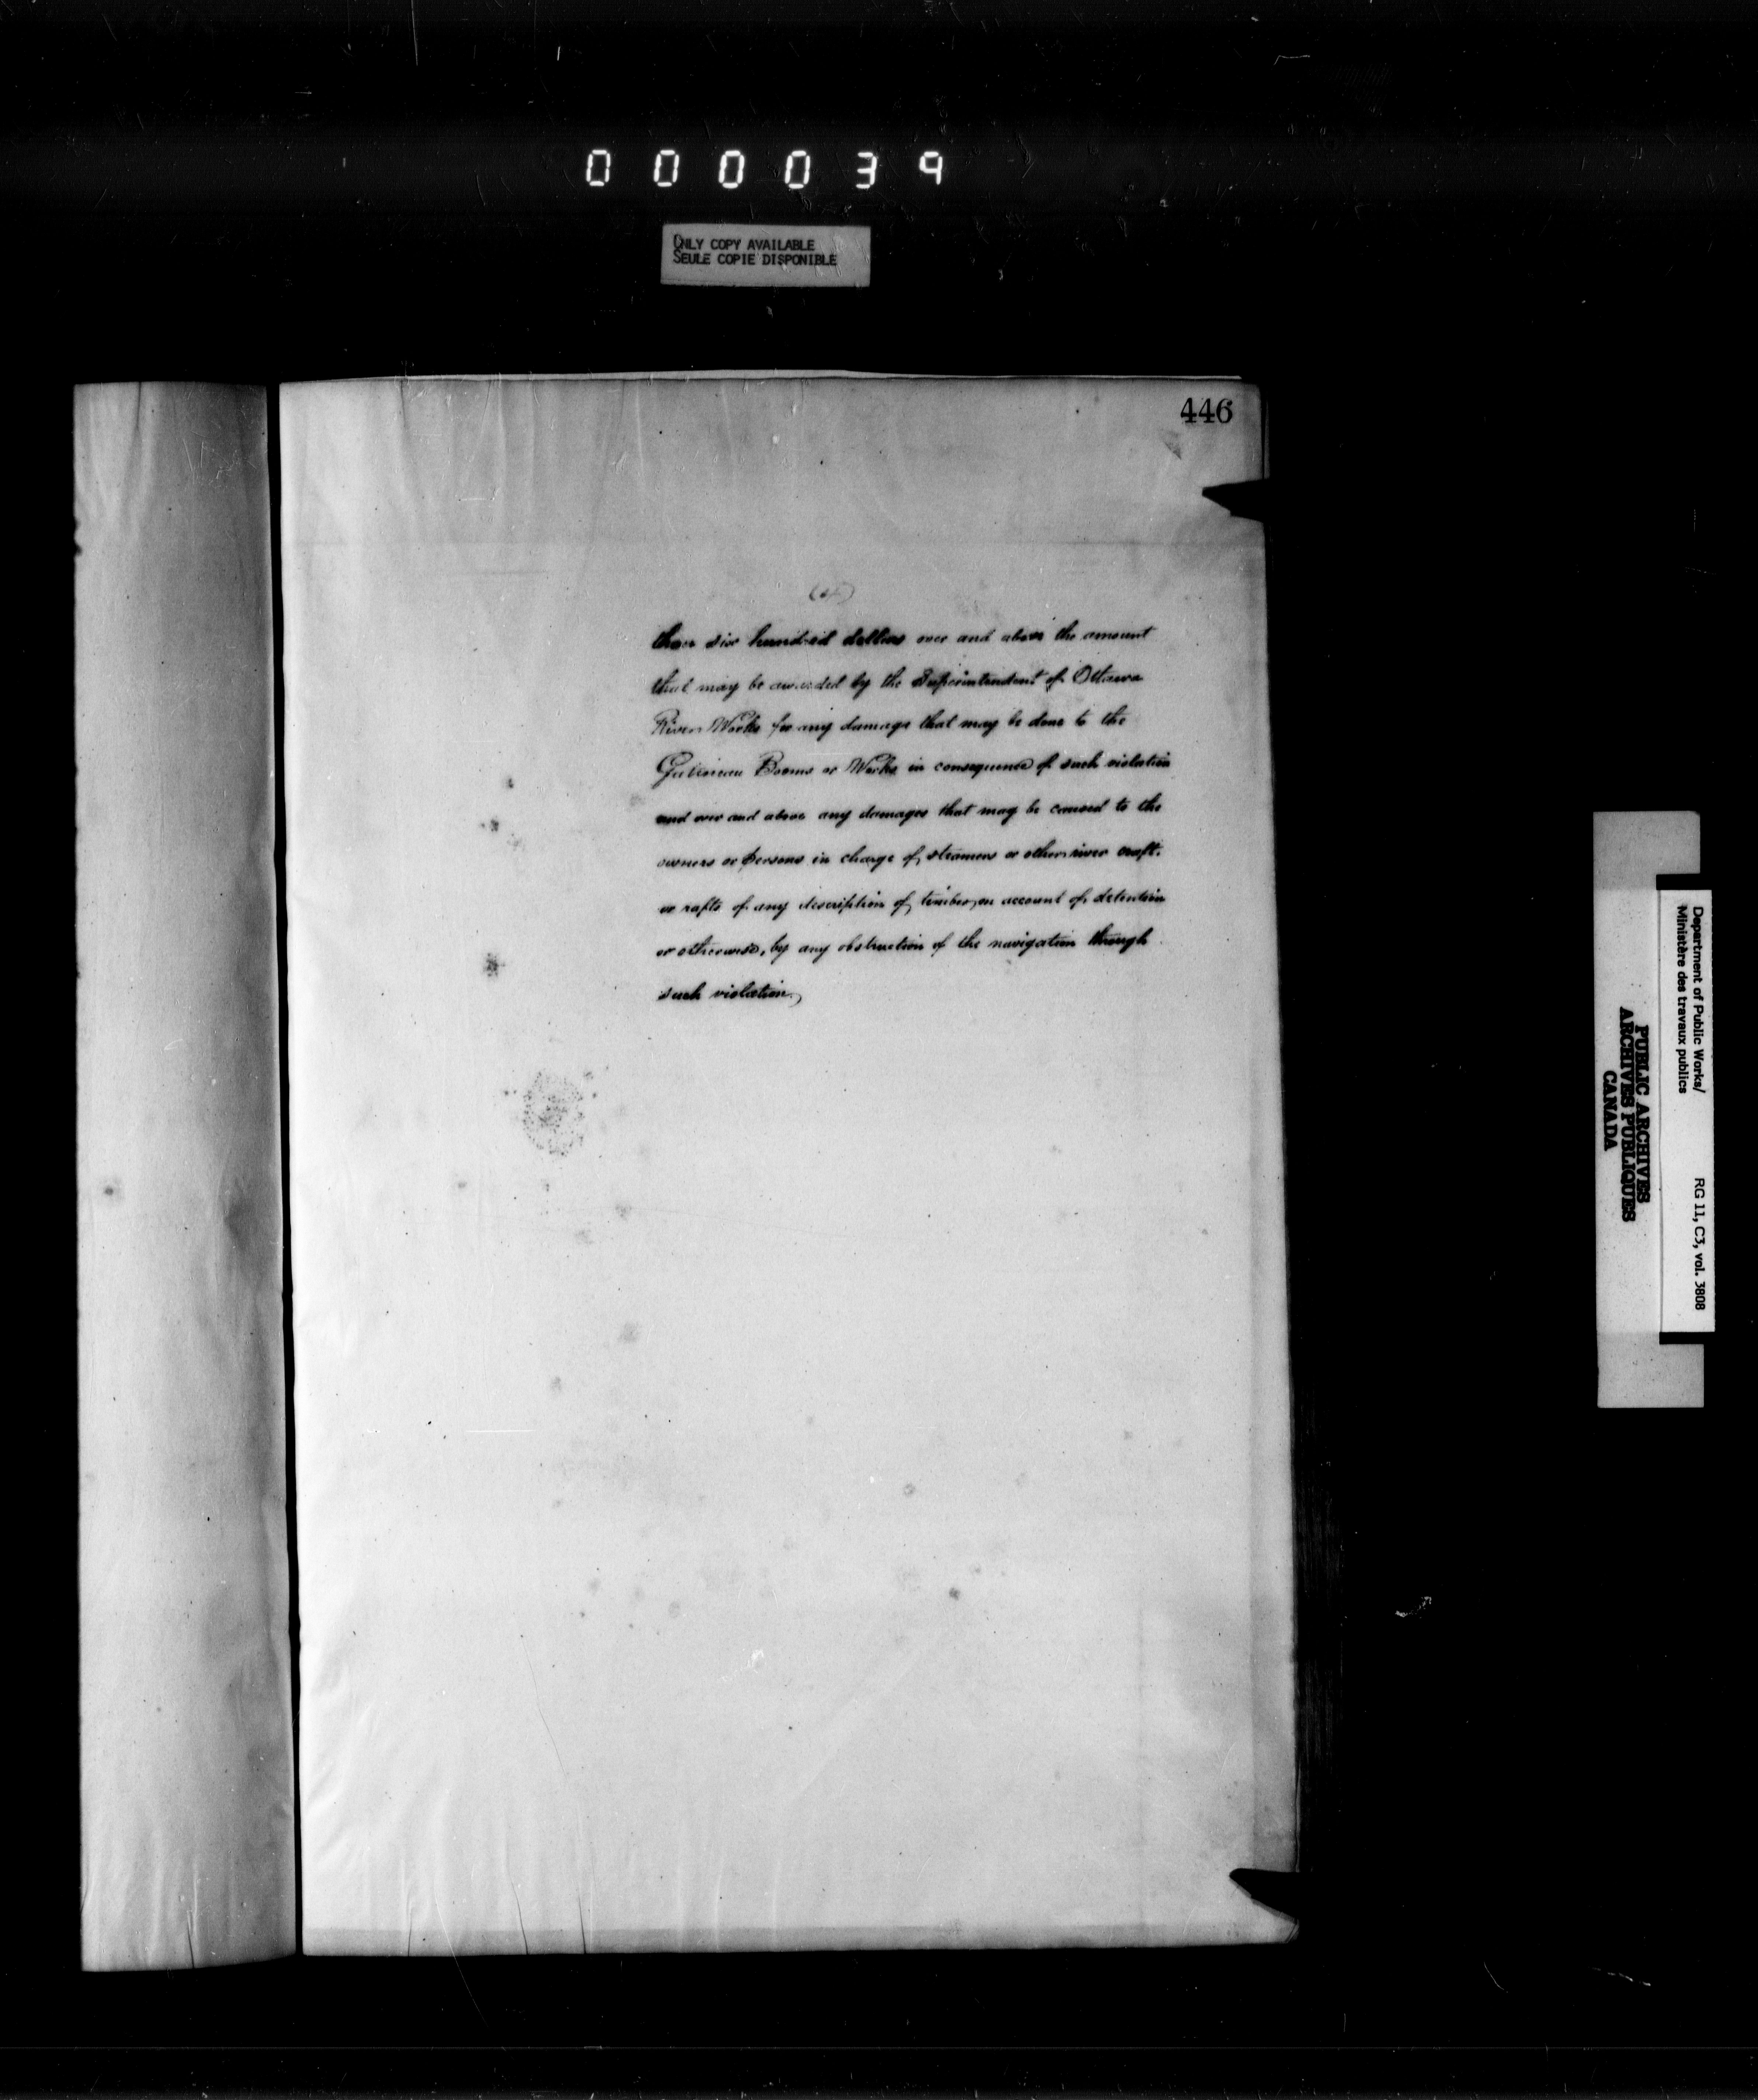 000039
ONLY COPY AVAILABLE
SEULE COPIE DISPONIBLE
446
than six hundred dollars over and above the amount
that may be awarded by the Superintendent of Ottawa
River Works for any damage that may be done to the
Gatineau Booms or Works in consequence of such violation
and over and above any damages that may be caused to the
owners or persons in charge of steamers or other river craft.
or rafts of any description of timber, on account of detention
or otherwise, by any obstruction of the navigation through
such violation,
Department of Public Works/
Ministère des travaux publics
RG 11, C3, vol. 3808
PUBLIC ARCHIVES
ARCHIVES PUBLIQUES
CANADA